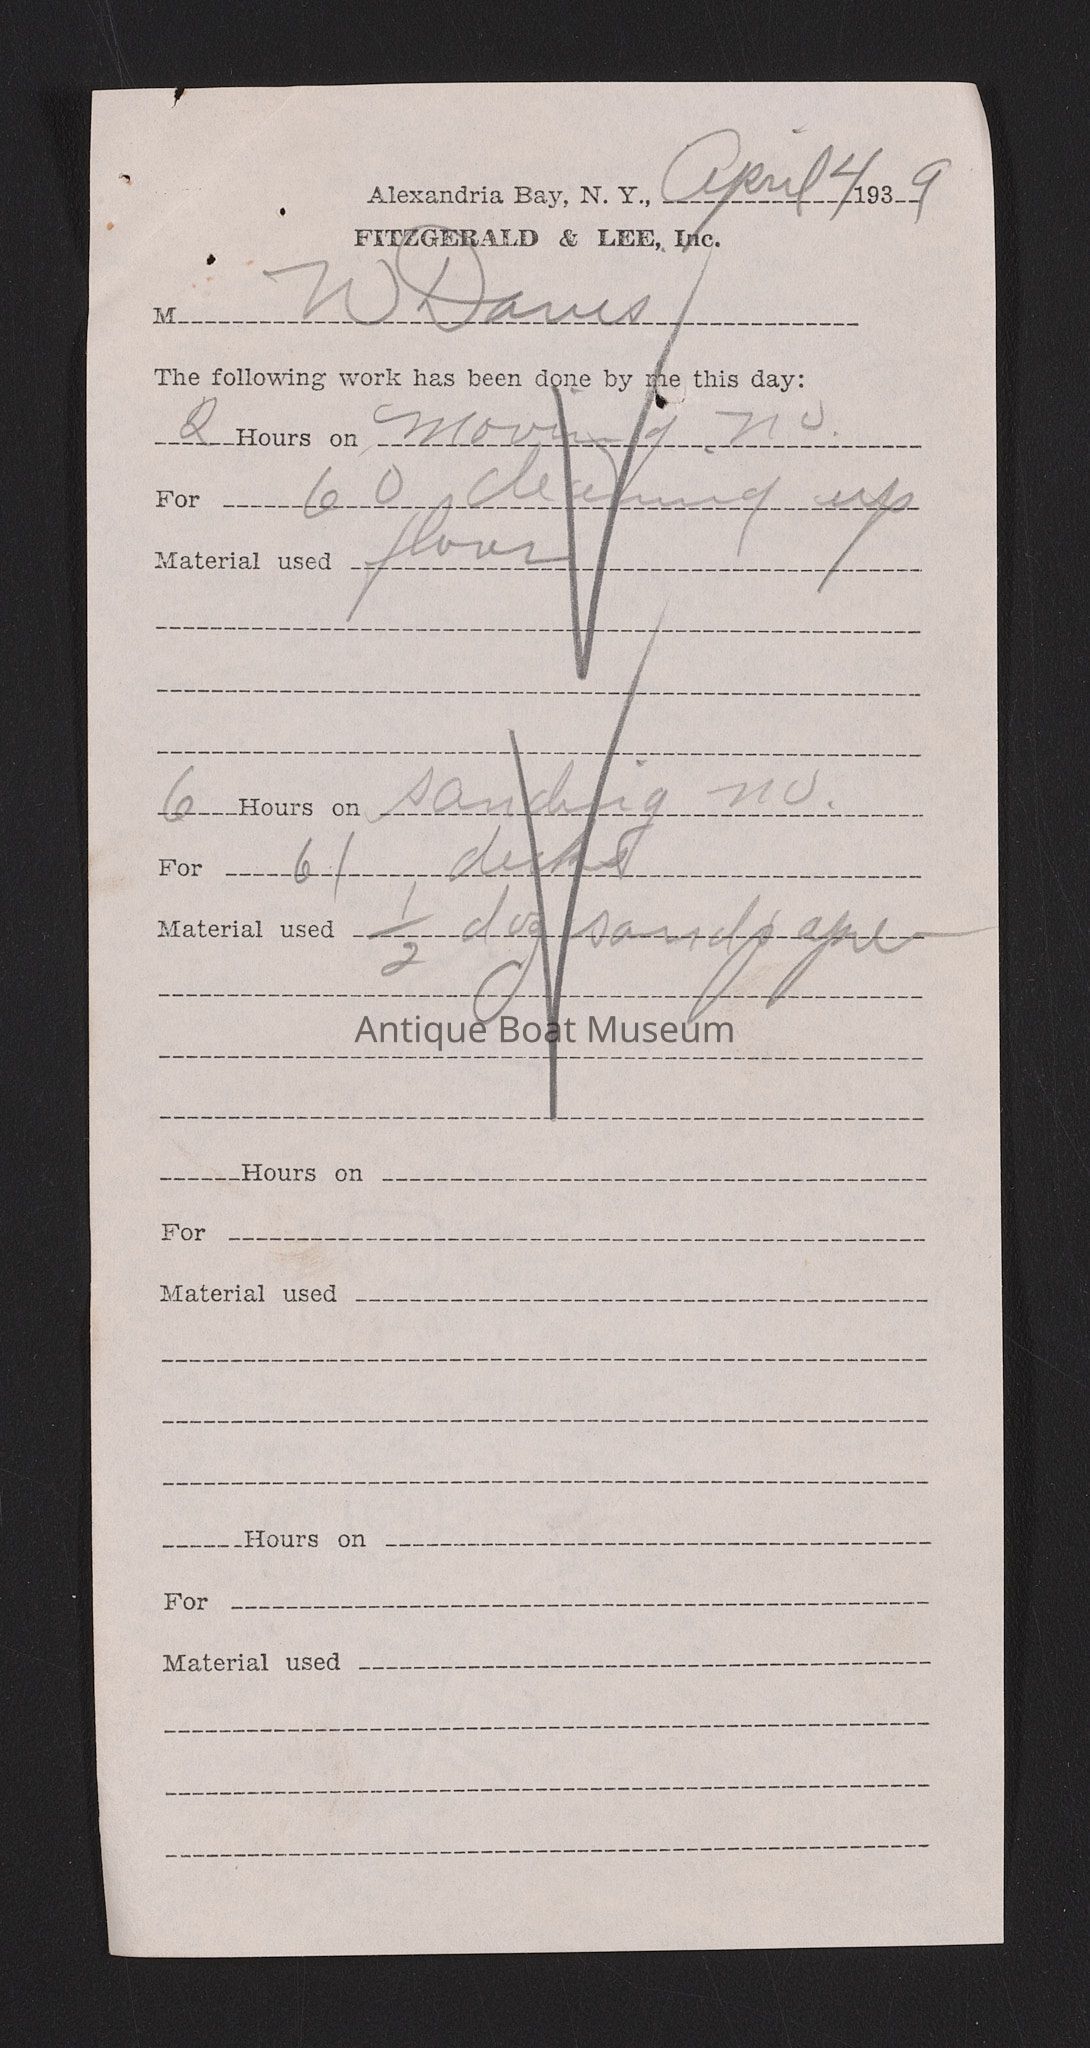 Alexandria Bay, N. Y., April 4 1939
FITZGERALD & LEE, Inc.
M W Daves
The following work has been done by me this day:
2 Hours on moving no.
For 60 cleaning up
Material used floor
6 Hours on sanding no.
For 61 decks
Material used 1/2 doz sandpaper
Antique Boat Museum
Hours on
For
Material used
Hours on
For
Material used